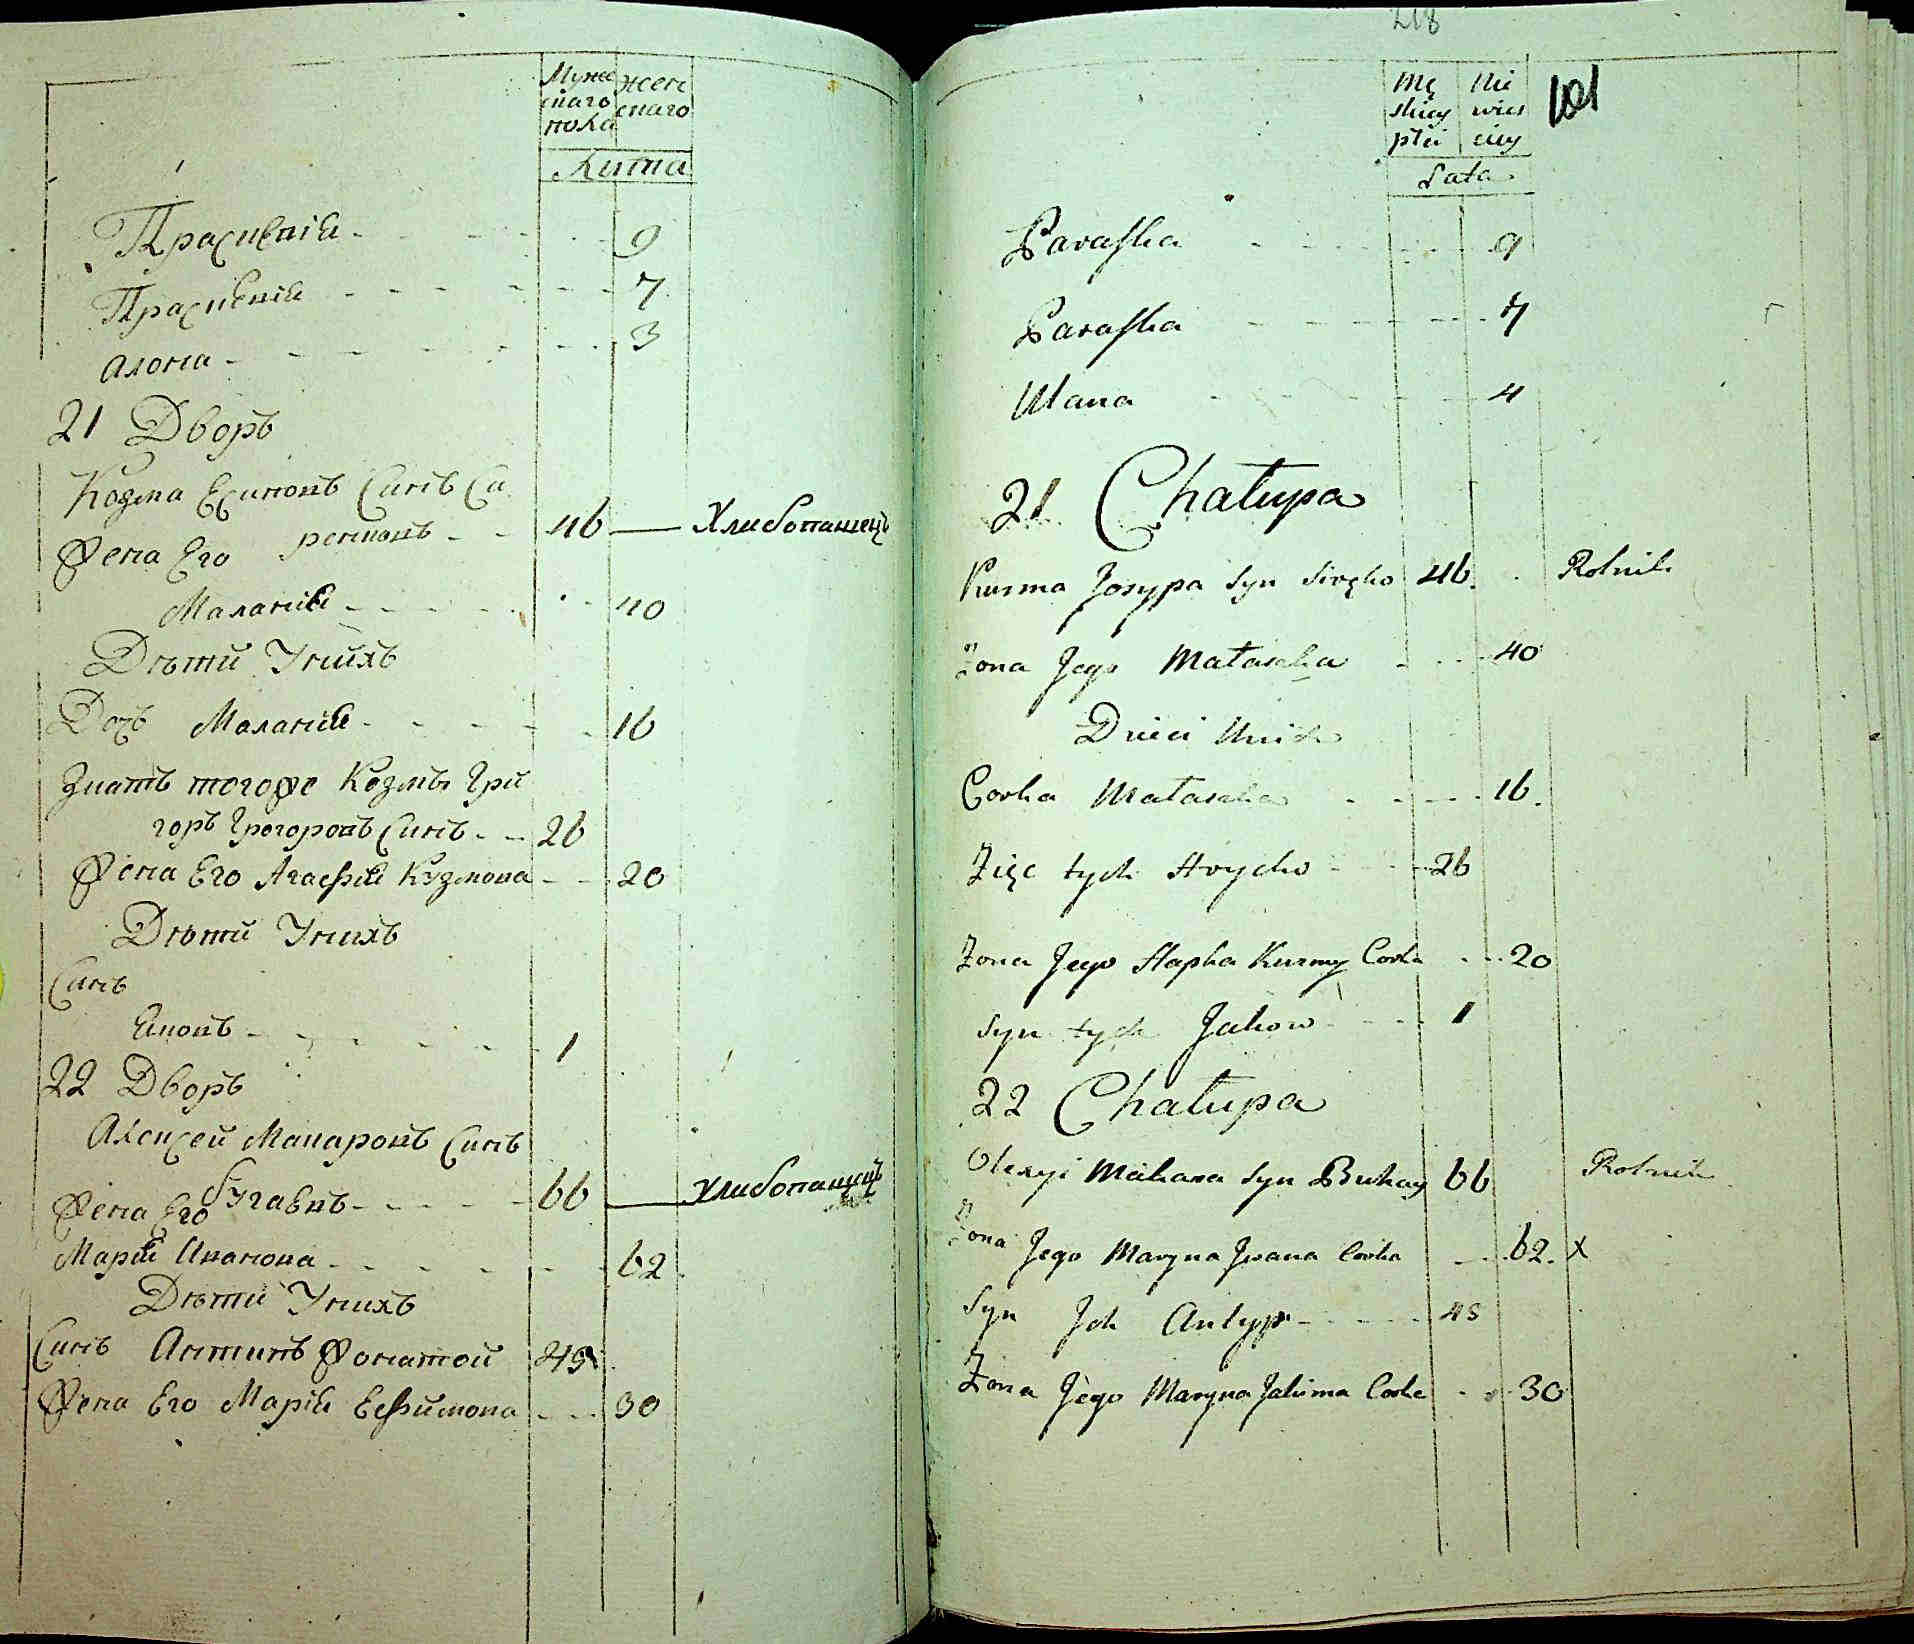 Муже
скаго
пола
жен
скаго
Лита
Праскевія 9
Праскевія 7
Алона 3
21 Дворъ
Козма Есиповъ Синъ Си
ренковъ 46 Хлибопашецъ
Жена Его
Маланія 40
Дѣти Унихъ
Дочь Маланія 16
Зиать тогоже Козмы Гри
горъ Грогоровъ Синъ 26
Жена Его Агафія Кузмова 20
Дѣти Унихъ
Синъ
Яковъ 1
22 Дворъ
Алексей Макаровъ Синъ
Бугаевъ 66 Хлибопашецъ
Жена Его
Марія Иванова 62
Дѣти Унихъ
Синъ Антипъ Жонатой 45
Жена Его Марія Ефимова 30
218
Mę
skiey
płci
Nie
wies
ciey
Lata
101
Paraska 9
Paraska 7
Ulana 4
21 Chałupa
Kuzma Josypa Syn Siręko 46 Rolnik
Zona Jego Małaszka 40
Dzieci Unich
Corka Małaszka 16
Zięc tych Hrycko 26
Zona Jego Hapka Kuzmy Corka 20
Syn tych Jakow 1
22 Chałupa
Olexyi Makara Syn Buhay 66 Rolnik
Zona Jego Maryna Jwana Corka 62 x
Syn Jch Antyp 45
Zona Jego Maryna Jakima Corka 30